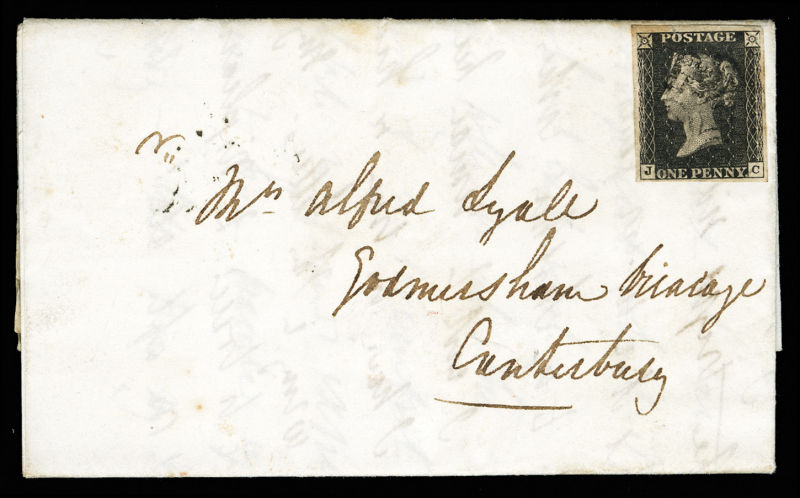 POSTAGE
J C
ONE PENNY.
Mrs Alfred Lyall
Godmersham Vicarage
Canterbury